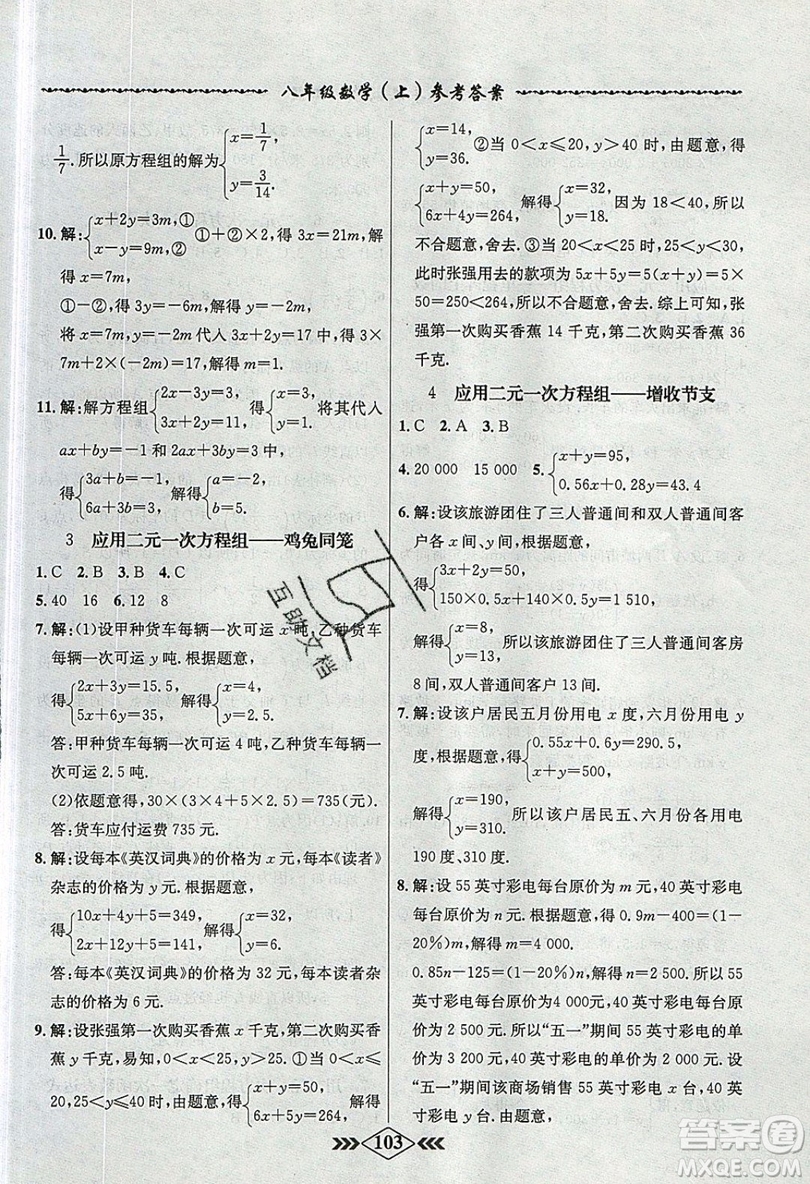 八年级数学(上)参考答案
1/7. 所以原方程组的解为{x=1/7, y=3/14.
10. 解:{x+2y=3m,① x−y=9m,② ①+②×2,得 3x=21m,解
得 x=7m,
①−②,得 3y=−6m,解得 y=−2m,
将 x=7m,y=−2m 代人 3x+2y=17m,得 3×
7m+2×(−2m)=17m. 解得 m=1.
11. 解:解方程组{2x−3y=3, 3x+2y=11, 得{x=3, y=1, 将其代人
ax+by=−1 和 2ax+3by=3,
得{3a+b=−1, 6a+3b=3, 解得{a=−2, b=5.
3 应用二元一次方程组——鸡兔同笼
1. C 2. B 3. B 4. C
5. 40 16 6. 12 8
7. 解:(1)设甲种货车每辆一次可运 x 吨,乙种货车
每辆一次可运 y 吨. 根据题意,
得{2x+3y=15.5, 5x+6y=35, 解得{x=4, y=2.5.
答:甲种货车每辆一次可运 4 吨,乙种货车每辆
一次可运 2.5 吨.
(2)依题意得,30×(3×4+5×2.5)=735(元).
答:货车应付运费 735 元.
8. 解:设每本《英汉词典》的价格为 x 元,每本《读者》
杂志的价格为 y 元. 根据题意,
得{10x+4y+5=349, 2x+12y=141, 解得{x=32, y=6.
答:每本《英汉词典》的价格为 32 元,每本读者杂
志的价格为 6 元.
9. 解:设张强第一次购买香蕉 x 千克,第二次购买香
蕉 y 千克,易知,0<x<25. ①当 0<x⩽
20,25<y⩽40 时,由题意,得{x+y=50, 6x+5y=264, 解得
{x=14, y=36. ②当 0<x⩽20,y>40 时,由题意,得
{x+y=50, 6x+4y=264, 解得{x=32, y=18. 因为 18<40,所以
不合题意,舍去. ③当 20<x<25 时,25<y<30,
此时张强用去的款项为 5x+5y=5(x+y)=5×
50=250<264,所以不合题意,舍去. 综上可知,张
强第一次购买香蕉 14 千克,第二次购买香蕉 36
千克.
4 应用二元一次方程组——增收节支
1. C 2. A 3. B
4. 20 000 15 000 5. {x+y=95, 0.56x+0.8y=43.4
6. 解:设该旅游团住了三人普通间和双人普通间客
户各 x 间、y 间. 根据题意,
得{3x+2y=50, 150×0.5x+140×0.5y=1 510,
解得{x=8, y=13. 所以该旅游团住了三人普通间客房
8 间,双人普通间客户 13 间.
7. 解:设该户居民五月份用电 x 度,六月份用电 y
度,根据题意,得{0.55x+0.6y=290.5, x+y=500.
解得{x=190, y=310. 所以该户居民五、六月份各用电
190 度、310 度.
8. 解:设 55 英寸彩电每台原价为 m 元,40 英寸彩电
每台原价为 n 元. 根据题意,得 0.9m−400=(1−
20%)m,解得 m=4 000.
0.85n−125=(1−20%)n,解得 n=2 500. 所以 55
英寸彩电每台原价为4 000元,40 英寸彩电每台原
价为 2 500 元. 所以“五一”期间 55 英寸彩电的单
价为 3 200 元,40 英寸彩电的单价为 2 000 元. 设
“五一”期间该商场销售 55 英寸彩电 x 台,40 英
寸彩电 y 台. 由题意,得
103
互助文档
答案圈
MXQE.COM